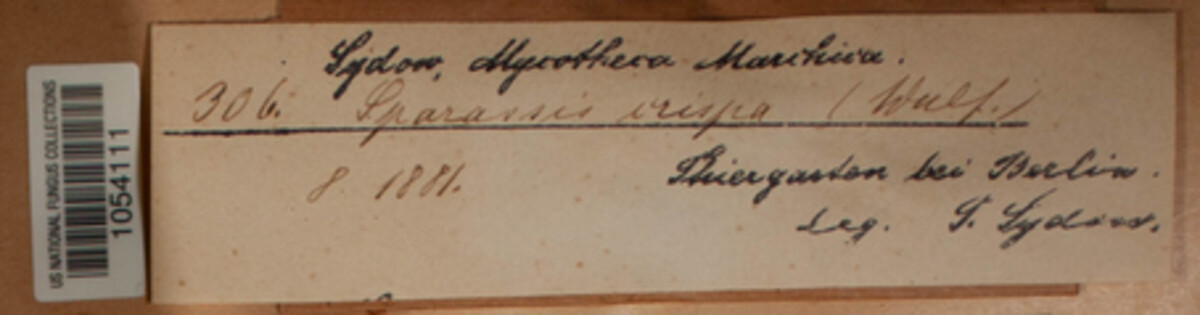 US NATIONAL FUNGUS COLLECTIONS
1054111
Sydow, Mycotheca Marchica.
306. Sparassis crispa (Wulf.)
8. 1881.
Thiergarten bei Berlin.
leg. P. Sydow.